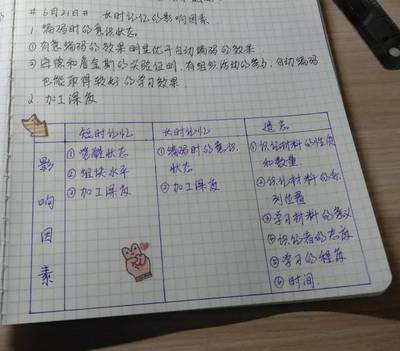 #6月21日# 长时记忆的影响因素
1. 编码时的意识状态
①有意编码的效果明显优于自动编码的效果
②在有组织活动的参与,自动编码
也能取得较好的学习效果
2. 加工深度
短时记忆 长时记忆 遗忘
影响因素
①觉醒状态 ①编码时的意识 ①识记材料的性质
状态 和数量
②组块水平 ②识记材料的系
③加工深度 ②加工深度 列位置
③学习材料的意义
④识记者的态度
⑤学习的程度
⑥时间